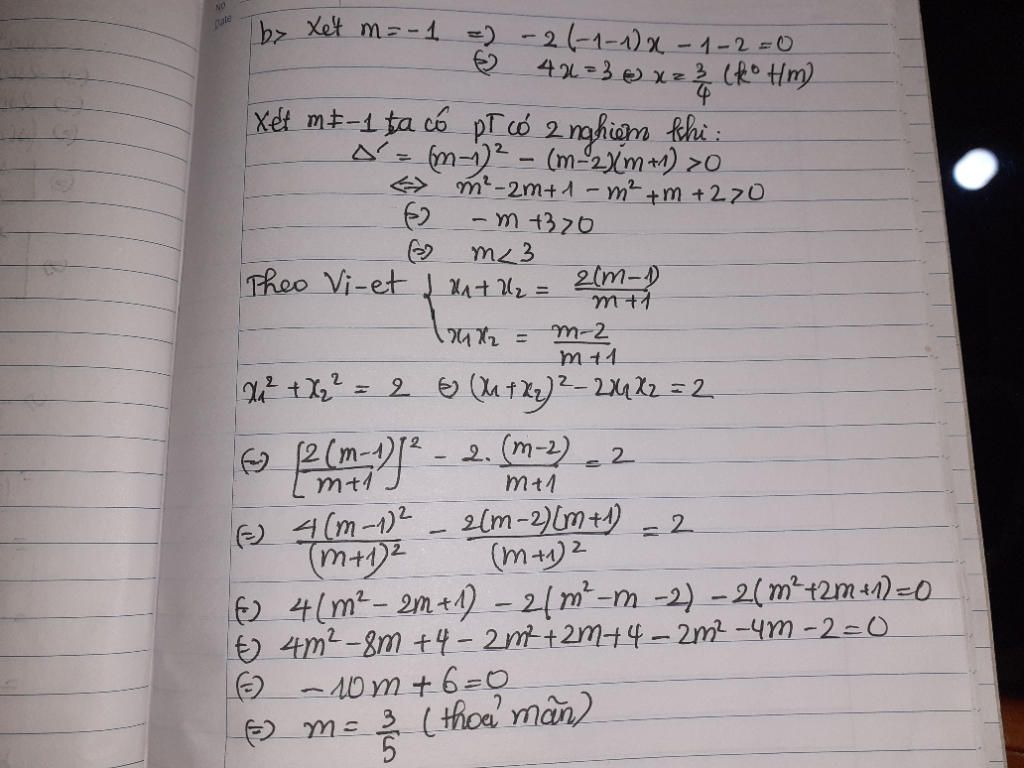 NO
Date
b> Xét m = -1 => -2(-1-1)x - 1 - 2 = 0
<=> 4x = 3 <=> x = 3/4 (ko t/m)
Xét m ≠ -1 ta có pT có 2 nghiệm khi:
Δ' = (m-1)² - (m-2)(m+1) > 0
<=> m² - 2m + 1 - m² + m + 2 > 0
<=> -m + 3 > 0
<=> m < 3
Theo Vi-et { x₁ + x₂ = 2(m-1)/(m+1)
x₁x₂ = (m-2)/(m+1)
x₁² + x₂² = 2 <=> (x₁ + x₂)² - 2x₁x₂ = 2
<=> [2(m-1)/(m+1)]² - 2.(m-2)/(m+1) = 2
<=> 4(m-1)²/(m+1)² - 2(m-2)(m+1)/(m+1)² = 2
<=> 4(m² - 2m + 1) - 2(m² - m - 2) - 2(m² + 2m + 1) = 0
<=> 4m² - 8m + 4 - 2m² + 2m + 4 - 2m² - 4m - 2 = 0
<=> -10m + 6 = 0
<=> m = 3/5 (thoả mãn)